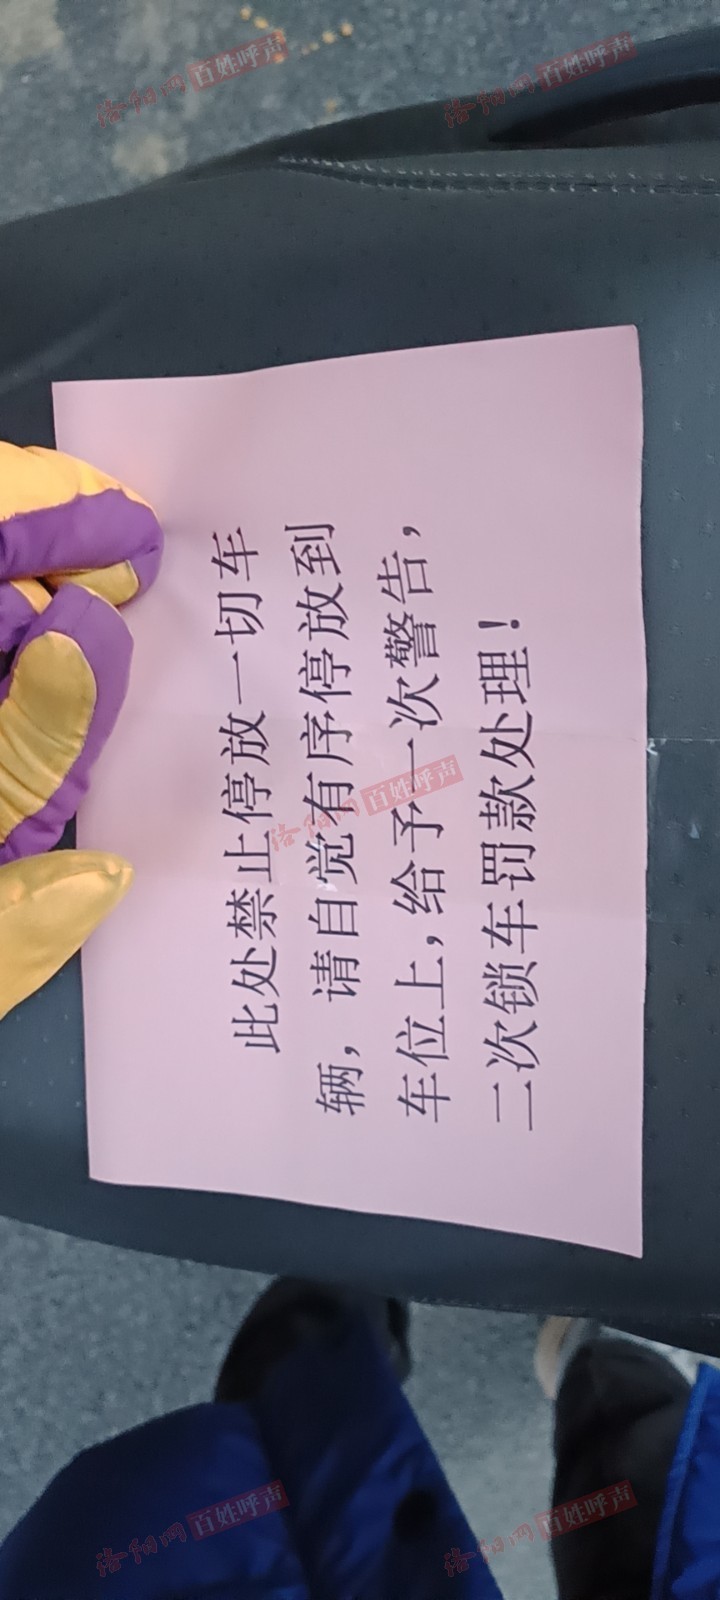 此处禁止停放一切车
辆，请自觉有序停放到
车位上，给予一次警告，
二次锁车罚款处理！
洛阳网 百姓呼声
洛阳网 百姓呼声
洛阳网 百姓呼声
洛阳网 百姓呼声
洛阳网 百姓呼声